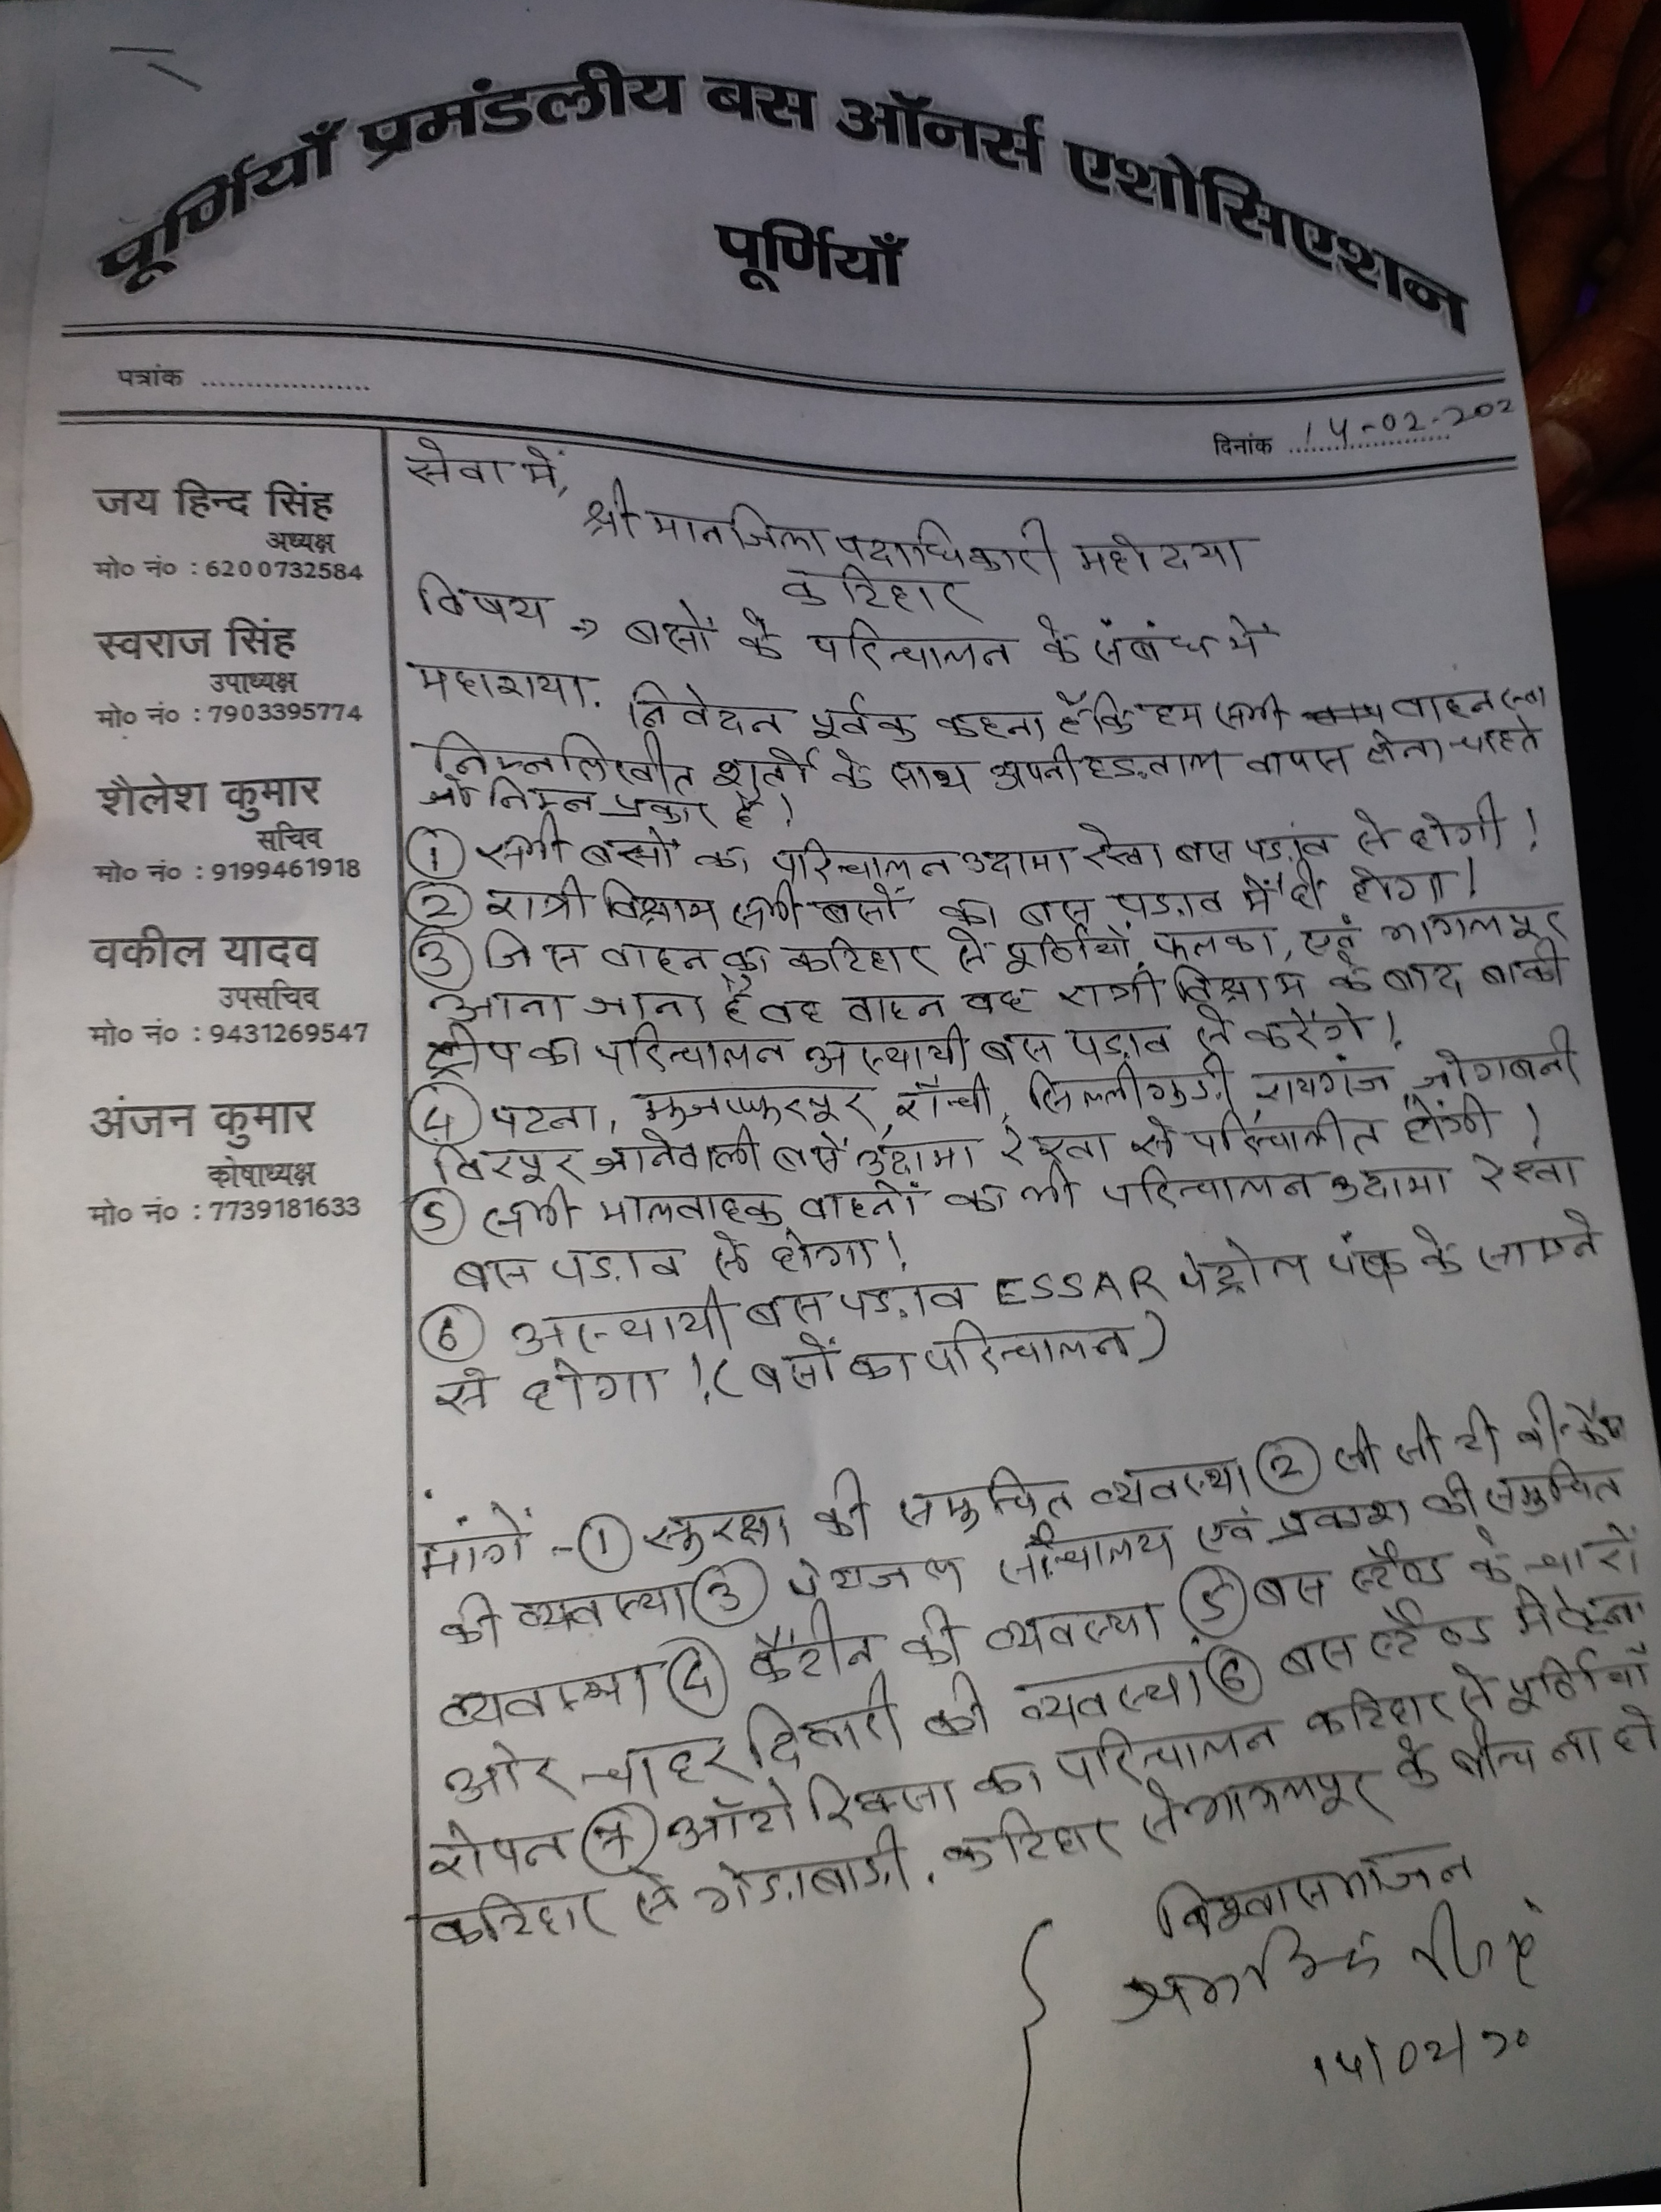 पूर्णियाँ प्रमंडलीय बस ऑनर्स एशोसिएशन
पूर्णियाँ
पत्रांक ...................
दिनांक 14-02-202
जय हिन्द सिंह
अध्यक्ष
मो० नं० : 6200732584
स्वराज सिंह
उपाध्यक्ष
मो० नं० : 7903395774
शैलेश कुमार
सचिव
मो० नं० : 9199461918
वकील यादव
उपसचिव
मो० नं० : 9431269547
अंजन कुमार
कोषाध्यक्ष
मो० नं० : 7739181633
सेवा में,
श्री मान जिला पदाधिकारी महोदया
कटिहार
विषय → बसों के परिचालन के संबंध में
महाशया.
निवेदन पूर्वक कहना है कि हम सभी वाहन
निम्नलिखीत शर्तो के साथ अपनी हड़ताल वापस लेना चाहते
जो निम्न प्रकार है!
① सभी बसों का परिचालन उदामा रेखा बस पड़ाव से होगी!
② रात्री विश्राम सभी बसों का बस पड़ाव में ही होगा!
③ जिस वाहन का कटिहार से पूर्णियाँ, फलका, एवं भागलपुर
आना जाना है वह वाहन वह रात्री विश्राम के बाद बाकी
ट्रीप का परिचालन अस्थायी बस पड़ाव से करेंगे!
④ पटना, मुजफ्फरपुर, राँची, सिल्लीगुड़ी, रायगंज, जोगबनी
विरपुर जानेवाली बसें उदामा रेखा से परिचालीत होंगी!
⑤ सभी मालवाहक वाहनों का भी परिचालन उदामा रेखा
बस पड़ाव से होगा!
⑥ अस्थायी बस पड़ाव ESSAR पेट्रोल पंप के सामने
से होगा! (बसों का परिचालन)
मांगें :- ① सुरक्षा की समुचित व्यवस्था ② सी सी टी वी कैम
की व्यवस्था ③ पेयजल सौचालय एवं प्रकाश की समुचित
व्यवस्था ④ कैंटीन की व्यवस्था ⑤ बस स्टैण्ड के चारो
ओर चाहरदिवारी की व्यवस्था ⑥ बस स्टैण्ड में
रोपन ⑦ ऑटो रिक्सा का परिचालन कटिहार से पूर्णियाँ
कटिहार से गेड़ाबाड़ी, कटिहार से भागलपुर के बीच ना हो
विश्वासभाजन
14/02/20